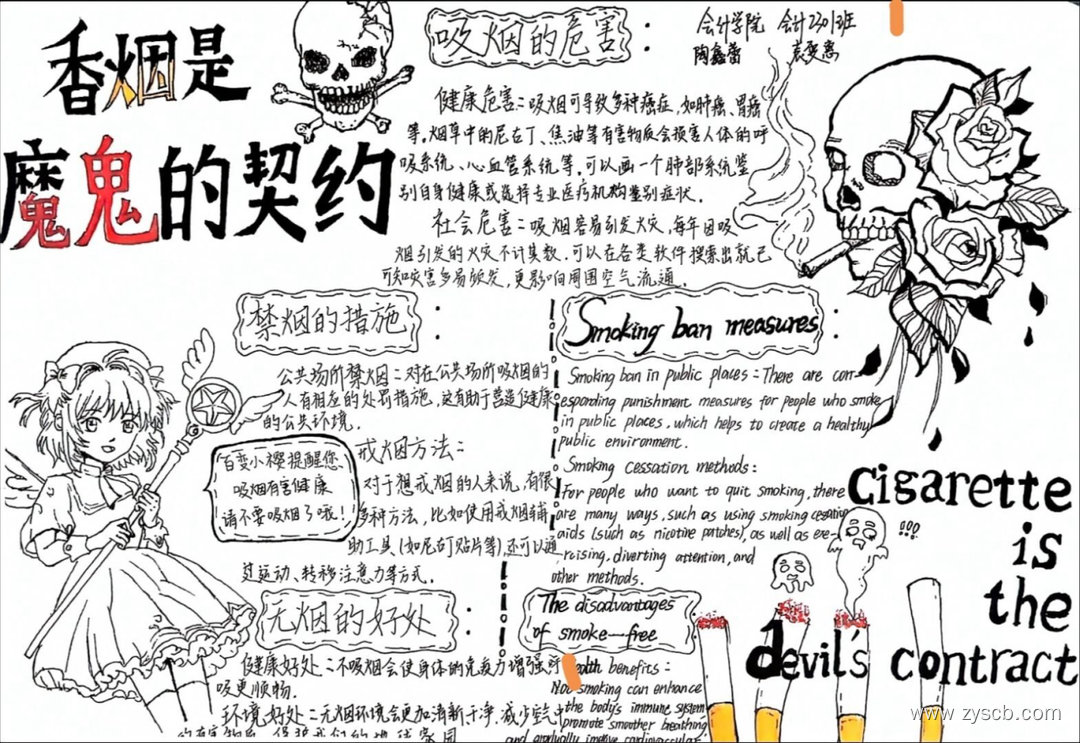 香烟是
魔鬼的契约
吸烟的危害：
会计学院 会计2301班
陶鑫蕾
健康危害：吸烟可导致多种癌症，如肺癌、胃癌
等。烟草中的尼古丁、焦油等有害物质会损害人体的呼
吸系统、心血管系统等，可以画一个肺部系统鉴
别自身健康或选择专业医疗机构鉴别症状。
社会危害：吸烟容易引发火灾，每年因吸
烟引发的火灾不计其数，可以在各类软件搜索出就已
可知灾害多易频发，更影响周围空气流通。
禁烟的措施：
公共场所禁烟：对在公共场所吸烟的
人有相应的处罚措施，这有助于营造健康
的公共环境.
戒烟方法：
对于想戒烟的人来说，有很
多种方法，比如使用戒烟辅
助工具（如尼古丁贴片等），还可以通
过运动、转移注意力等方式.
百变小樱提醒您
吸烟有害健康
请不要吸烟了哦!!
无烟的好处：
健康好处：不吸烟会使身体的免疫力增强，呼
吸更顺畅.
环境好处：无烟环境会更加清新干净，减少空气中
Smoking ban measures:
Smoking ban in public places: There are corr-
esponding punishment measures for people who smoke
in public places, which helps to create a healthy
public environment.
Smoking cessation methods:
For people who want to quit smoking, there
are many ways, such as using smoking cessation
aids (such as nicotine patches), as well as exe-
rcising, diverting attention, and
other methods.
The disadvantages
of smoke-free
benefits:
smoking can enhance
the body's immune system
promote smoother breathing
and gradually improve cardiovascular
Cigarette
is
the
devil's contract
!!!
www.zyscb.com